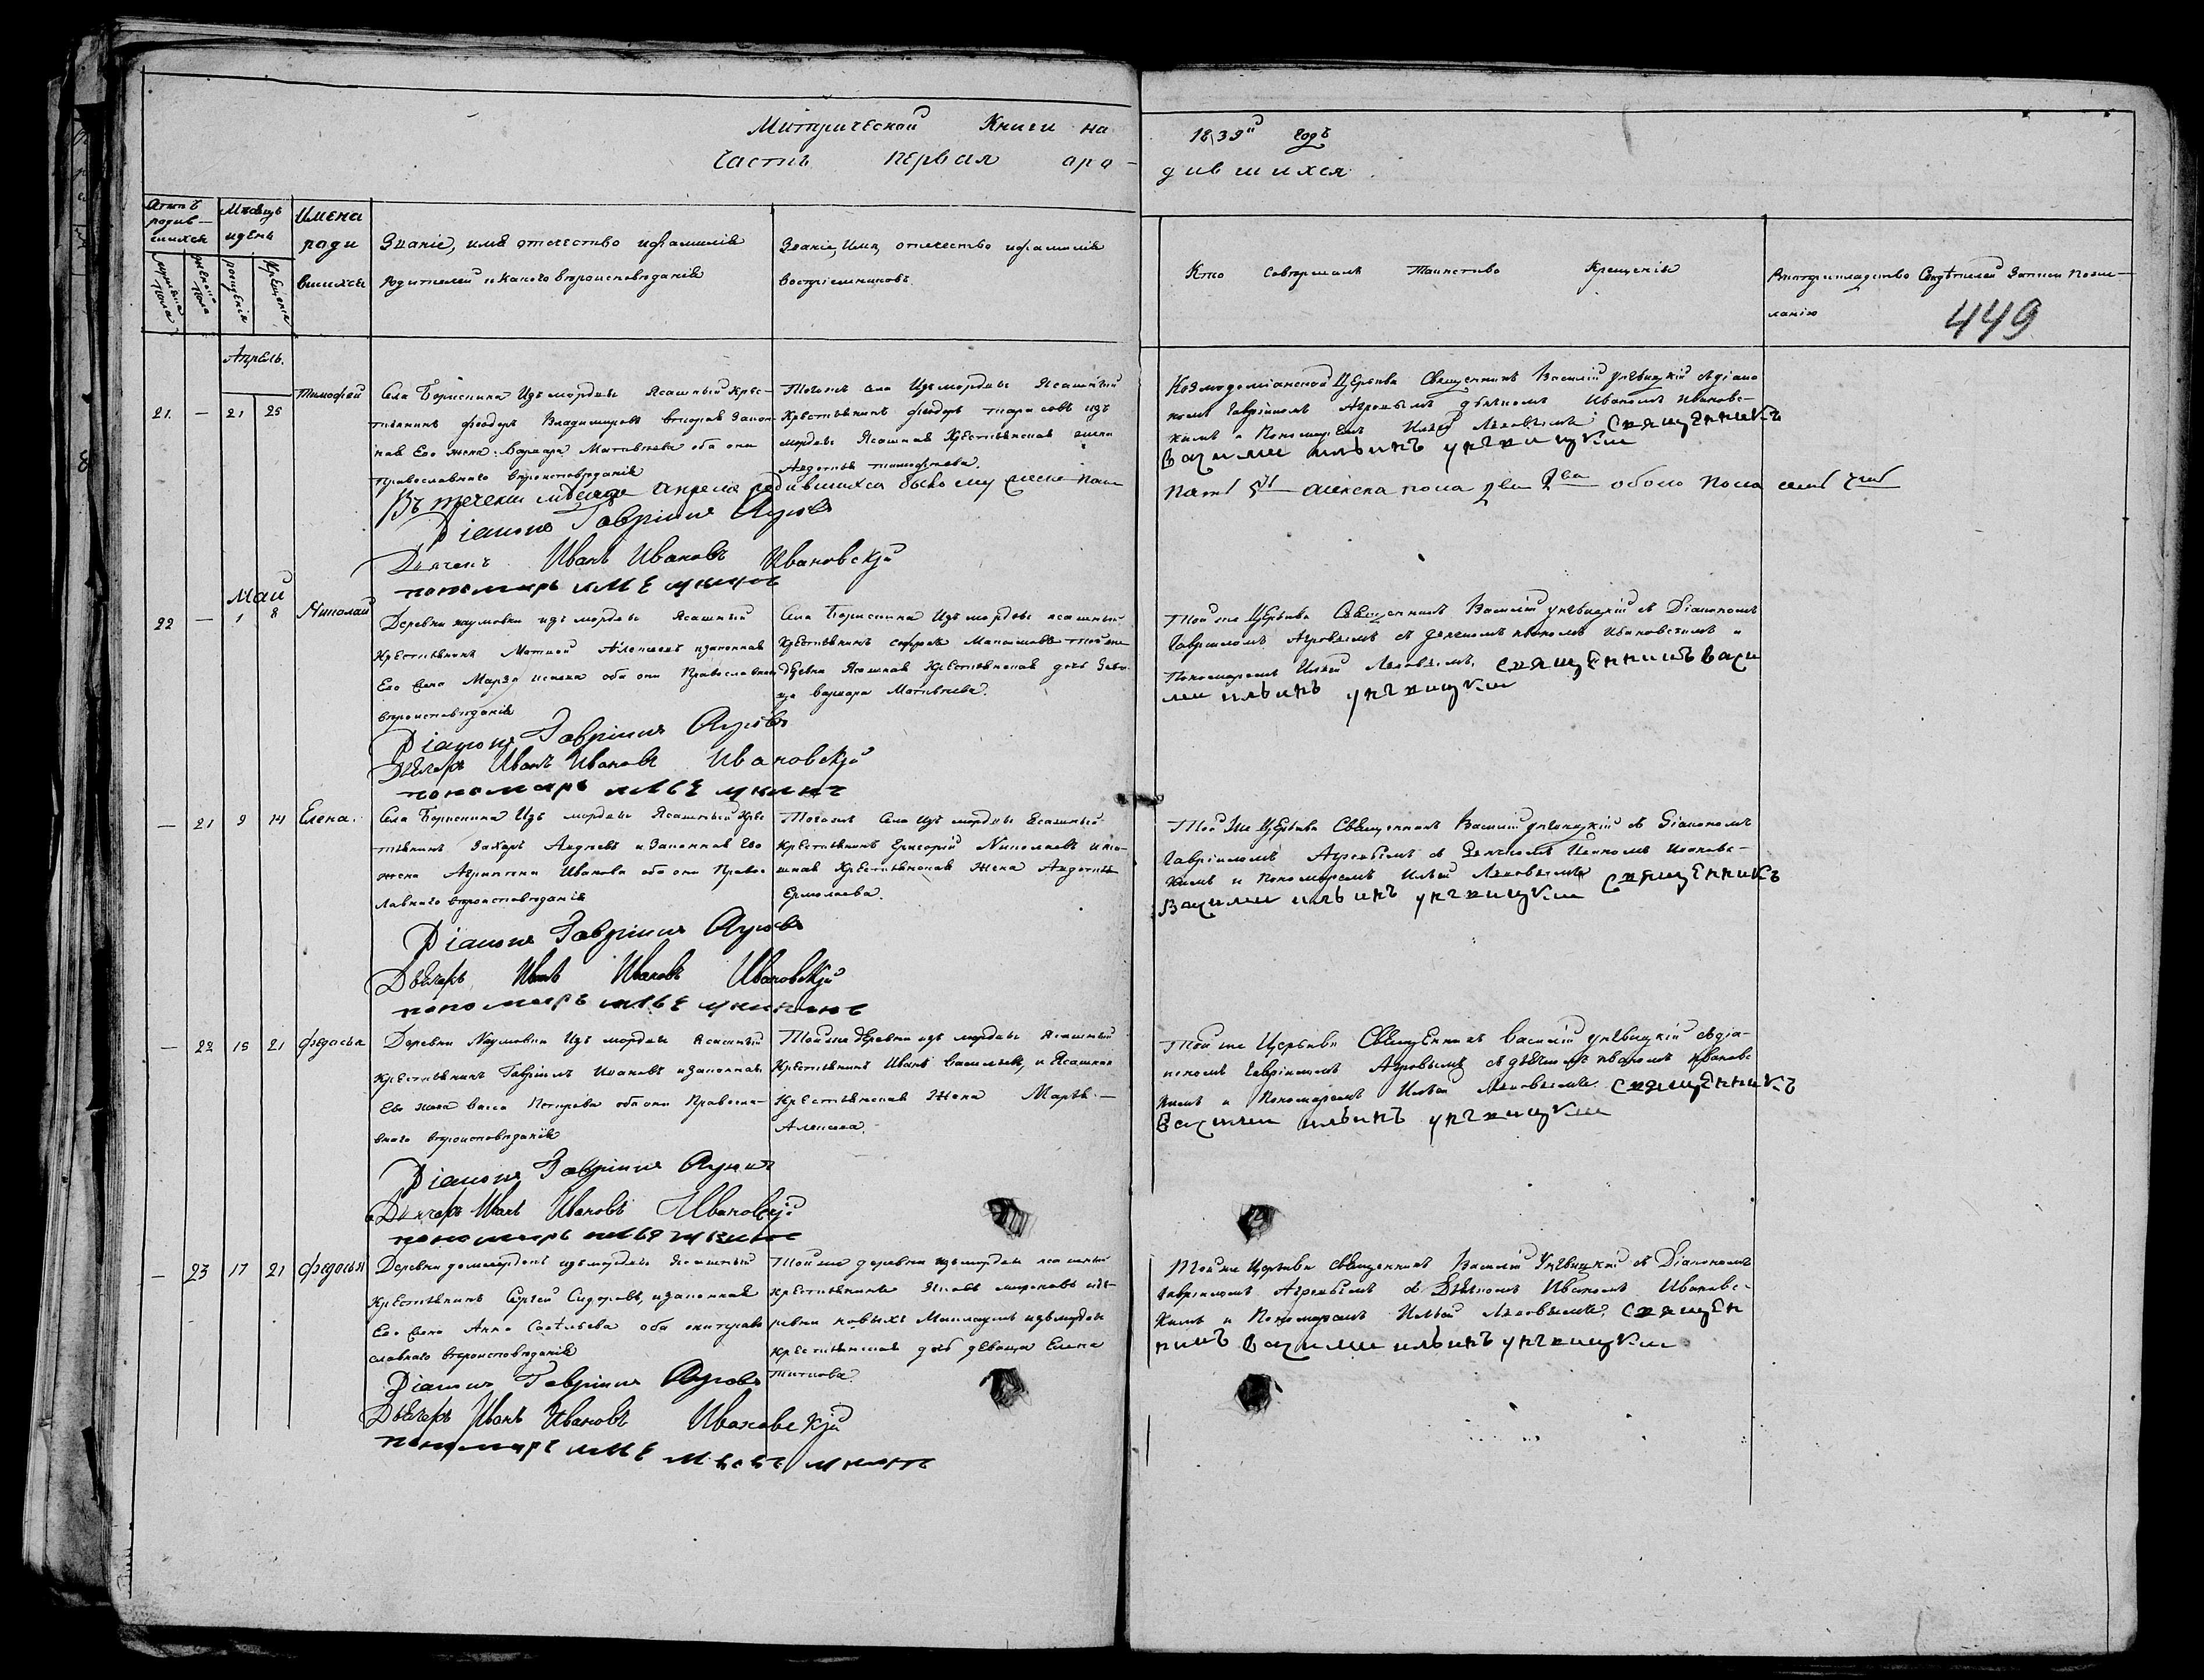 Митрической Книги на 1839й годъ
Часть первая о ро-дившихся.
Счетъ родив-шихся
Мѣсяцъ и день
Имена роди вшихся
Званіе, имя отечество и фамилія родителей и какого вѣроисповѣданія
Званіе, Имя, отечество и фамилія воспріемниковъ.
Кто совершалъ Таинство Крещенія
Рукоприкладство Свидѣтелей Записи по же-
ланію
449
мужеска пола
женска пола
рожденія
Крещенія
Апрель.
21. — 21 25 Тимофей
Села Борискина Изъ мордвы Ясашный Крес-
тьянинъ Феодоръ Владимировъ вторая Закон
ная Его жена Варвара Матвѣева оба они
Православнаго вѣроисповѣданія
Тогожъ села Изъ мордвы Ясашный
Крестьянинъ Феодоръ Тарасовъ изъ
мордвы Ясашная Крестьянская жена
Авдотья Тимофеева.
Козмодоміанской Церкви Священникъ Василій Унѣвицкій съ діако
номъ Гавріиломъ Агровымъ дьячкомъ Иваномъ Ивановс-
кимъ и Пономаремъ Ильей Священникъ
Василий Ильинъ Унѣвицкий
Въ течении мѣсяце апреля родившихся было мужеска пола
пять 5ть женска пола два 2ва обоего пола семь 7мь
Діаконъ Гавріилъ Агровъ
Дьячекъ Иванъ Ивановъ Ивановскій
пономарь Илья
Май
22 — 1 8 Николай
Деревни Наумовки изъ мордвы Ясашный
Крестьянинъ Матвей Алексеевъ и законная
Его жена Марья Исаева оба они Православнаго
вѣроисповѣданія
Села Борискина Изъ мордвы ясашный
Крестьянинъ Софронъ тойже
дѣревни Ясашная Крестьянская дочь Деви-
ца Варвара Матвѣева.
Той же Церкви Священникъ Василій Унѣвицкій съ Діакономъ
Гавріиломъ Агровымъ съ дьячкомъ Иваномъ Ивановскимъ и
Пономаремъ Ильей Священникъ Васи
лий Ильинъ Унѣвицкий
Діаконъ Гавріилъ Агровъ
Дьячекъ Иванъ Ивановъ Ивановскій
пономарь Илья
— 21 9 14 Елена.
Села Борискина Изъ мордвы Ясашный Крес
тьянинъ Захаръ Авдѣевъ и Законная Его
жена Агрипина Иванова оба они Правос-
лавнаго вѣроисповѣданія
Тогожъ Села изъ мордвы Ясашный
Крестьянинъ Григорий Николаевъ и яса-
шная Крестьянская Жена Авдотья
Ермолаева.
Той Же Церкви Священникъ Василій Унѣвицкій съ Діакономъ
Гавріиломъ Агровымъ съ Дьячкомъ Иваномъ Ивановс-
кимъ и Пономаремъ Ильей Священникъ
Василий Ильинъ Унѣвицкий
Діаконъ Гавріилъ Агровъ
Дьячекъ Иванъ Ивановъ Ивановскій
пономарь Илья
— 22 15 21 Федосья
Деревни Наумовки Изъ мордвы Ясашный
Крестьянинъ Гавріилъ Ивановъ и законная
Его жена Васса Петрова оба они Правосла-
внаго вѣроисповѣданія
Той же Деревни изъ мордвы Ясашный
Крестьянинъ Иванъ Васильевъ, и Ясашная
Крестьянская Жена Марья —
Алексеева.
Той же Церкви Священникъ Василій Унѣвицкій съ діа-
кономъ Гавріиломъ Агровымъ съ дьячкомъ Иваномъ Ивановс
кимъ и Пономаремъ Ильей Священникъ
Василий Ильинъ Унѣвицкий
Діаконъ Гавріилъ Агровъ
Дьячекъ Иванъ Ивановъ Ивановскій
пономарь Илья
— 23 17 21 Федосья
Деревни изъ мордвы Ясашный
Крестьянинъ Сергей Сидоровъ, и законная
Его жена Анна Савельева оба они право
славнаго вѣроисповѣданія
Той же деревни изъ мордвы ясашный
Крестьянинъ Яковъ Мироновъ де-
ревни новыхъ изъ мордвы
крестьянская дочь девица Елена
Титова.
Той же Церкви Священникъ Василій Унѣвицкій съ Діакономъ
Гавріиломъ Агровымъ съ Дьячкомъ Иваномъ Ивановс-
кимъ и Пономаремъ Ильей Священ
никъ Василий Ильинъ Унѣвицкий
Діаконъ Гавріилъ Агровъ
Дьячекъ Иванъ Ивановъ Ивановскій
пономарь Илья